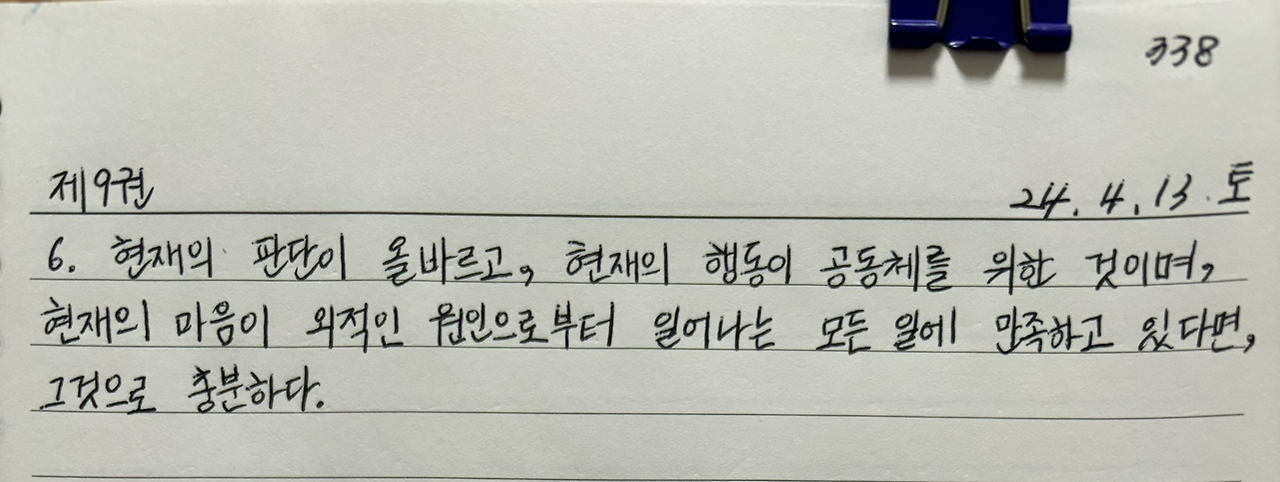 338
제9권 24. 4. 13. 토
6. 현재의 판단이 올바르고, 현재의 행동이 공동체를 위한 것이며,
현재의 마음이 외적인 원인으로부터 일어나는 모든 일에 만족하고 있다면,
그것으로 충분하다.